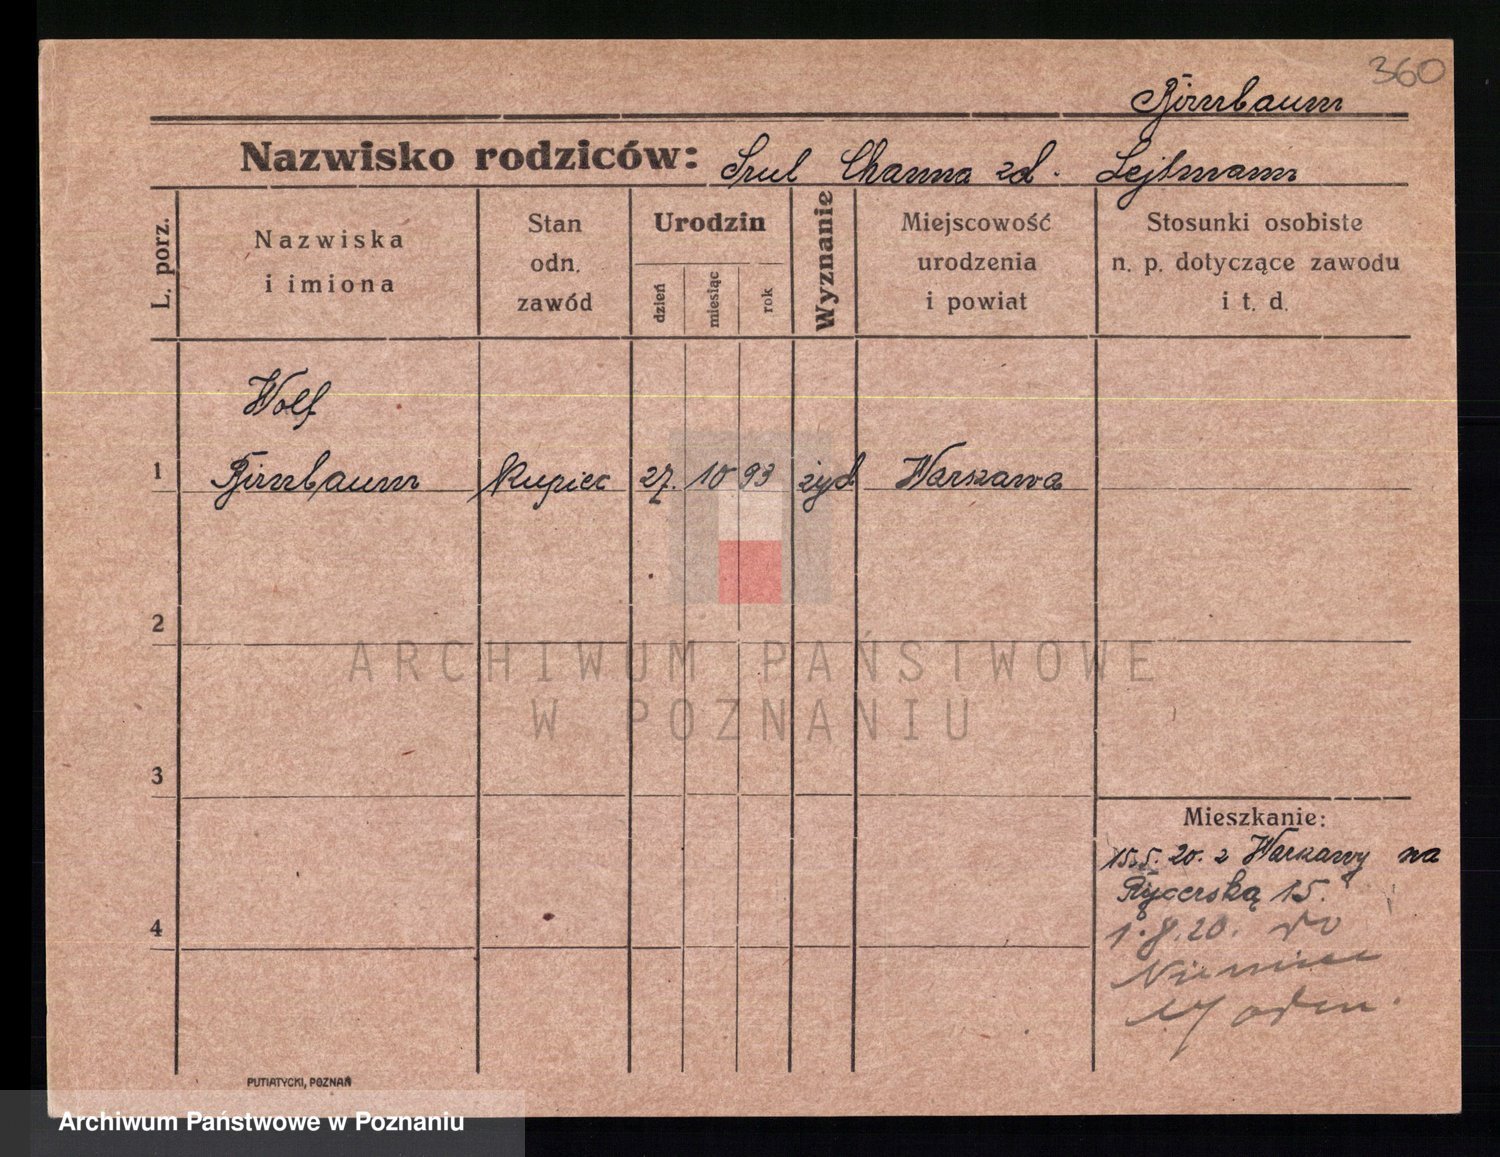 360
Birnbaum
Nazwisko rodziców: Srul Channa zd. Lejtmann
L. porz.
Nazwiska
i imiona
Stan
odn.
zawód
Urodzin
dzień
miesiąc
rok
Wyznanie
Miejscowość
urodzenia
i powiat
Stosunki osobiste
n. p. dotyczące zawodu
i t. d.
Wolf
1 Birnbaum kupiec 27. 10 93 żyd Warszawa
2
ARCHIWUM PAŃSTWOWE
W POZNANIU
3
Mieszkanie:
15.5.20. z Warszawy na
Rycerską 15.
4
1.8.20. do
Niemiec
PUTIATYCKI, POZNAŃ
Archiwum Państwowe w Poznaniu